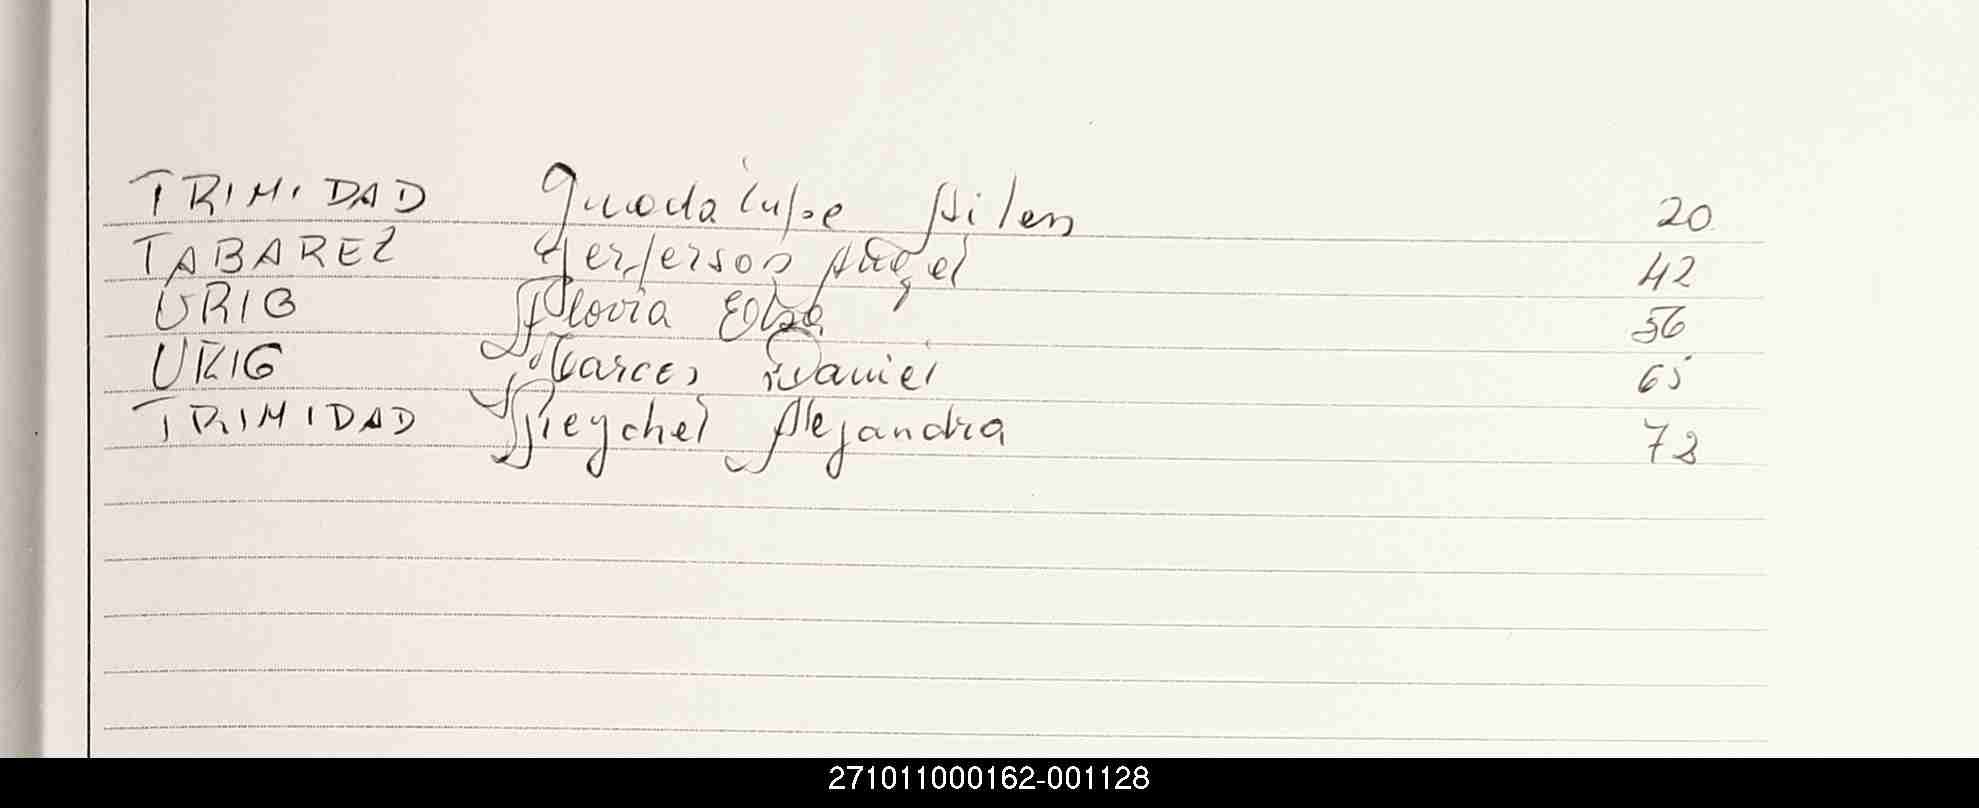 TRINIDAD Guadalupe Ailen 20
TABAREZ Yerferson Angel 42
URIB Flovia Elsa 56
URIG Marcos Daniel 65
TRINIDAD Pieychel Alejandra 72
271011000162-001128